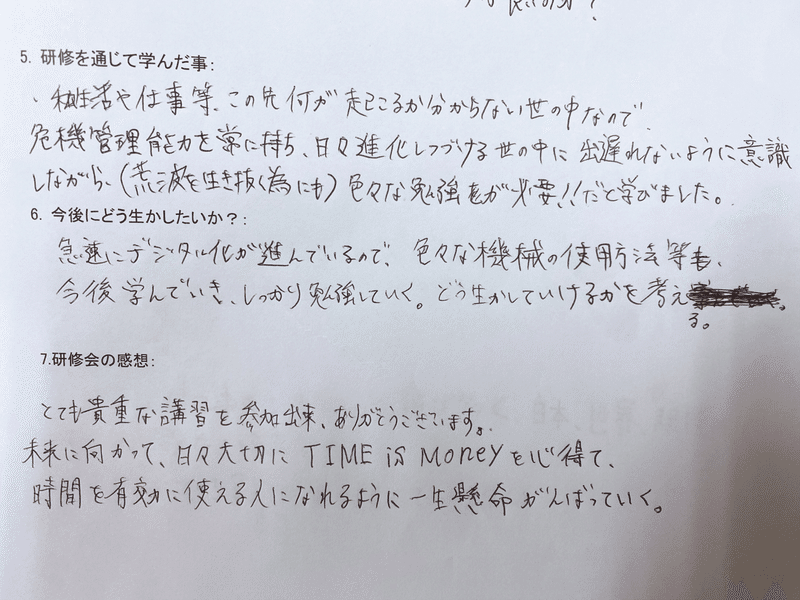 5. 研修を通じて学んだ事:
、私生活や仕事等、この先何が起こるか分からない世の中なので、
危機管理能力を常に持ち、日々進化しつづける世の中に出遅れないように意識
しながら、(荒波を生き抜く為にも)色々な勉強をが必要!!だと学びました。
6. 今後にどう生かしたいか?:
急速にデジタル化が進んでいるので、色々な機械の使用方法等も、
今後学んでいき、しっかり勉強していく。どう生かしていけるかを考え
る。
7.研修会の感想:
とても貴重な講習を参加出来、ありがとうございます。
未来に向かって、日々大切に TIME is MoneYを心得て、
時間を有効に使える人になれるように一生懸命がんばっていく。